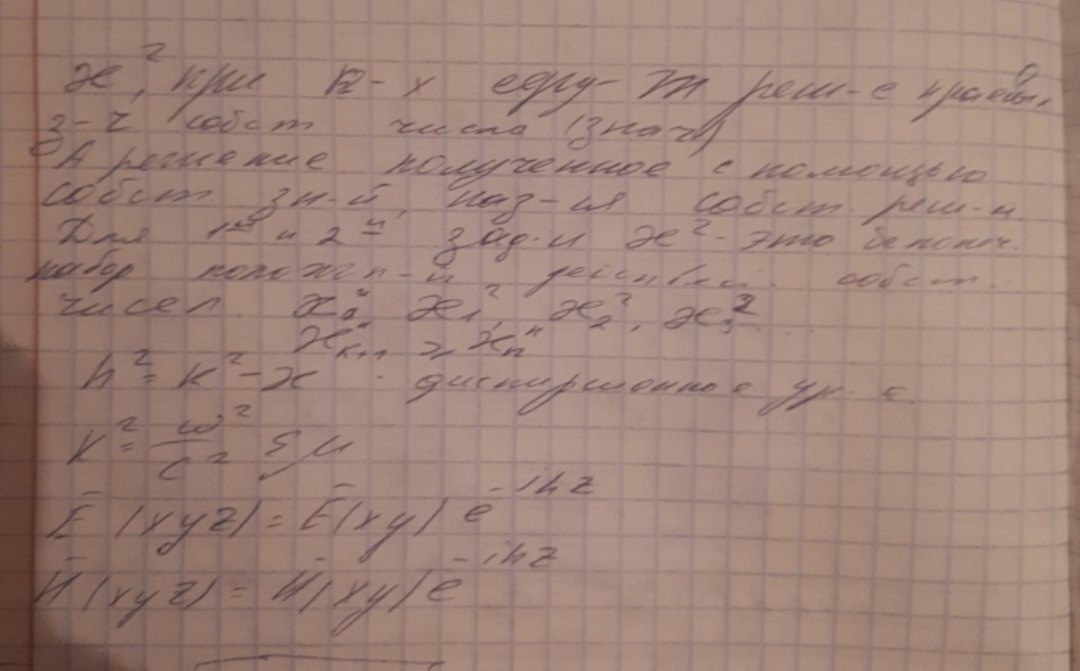 æ², при к-х сущ-т реш-е краевых
з-ч, собст числа (знач)
А решение полученное с помощью
собст зн-й, наз-ся собст. реш-и
Для 1й и 2й зад-и æ² - это бесконеч.
набор положит-й действ. собст.
чисел. æ₀², æ₁², æ₂², æ₃²
æₙ₊₁ ≥ æₙ
h² = k² - æ² - дисперсионное ур-е.
k² = ω²/c² εμ
Ē(xyz) = Ē(xy) e^-ihz
H̄(xyz) = H̄(xy) e^-ihz